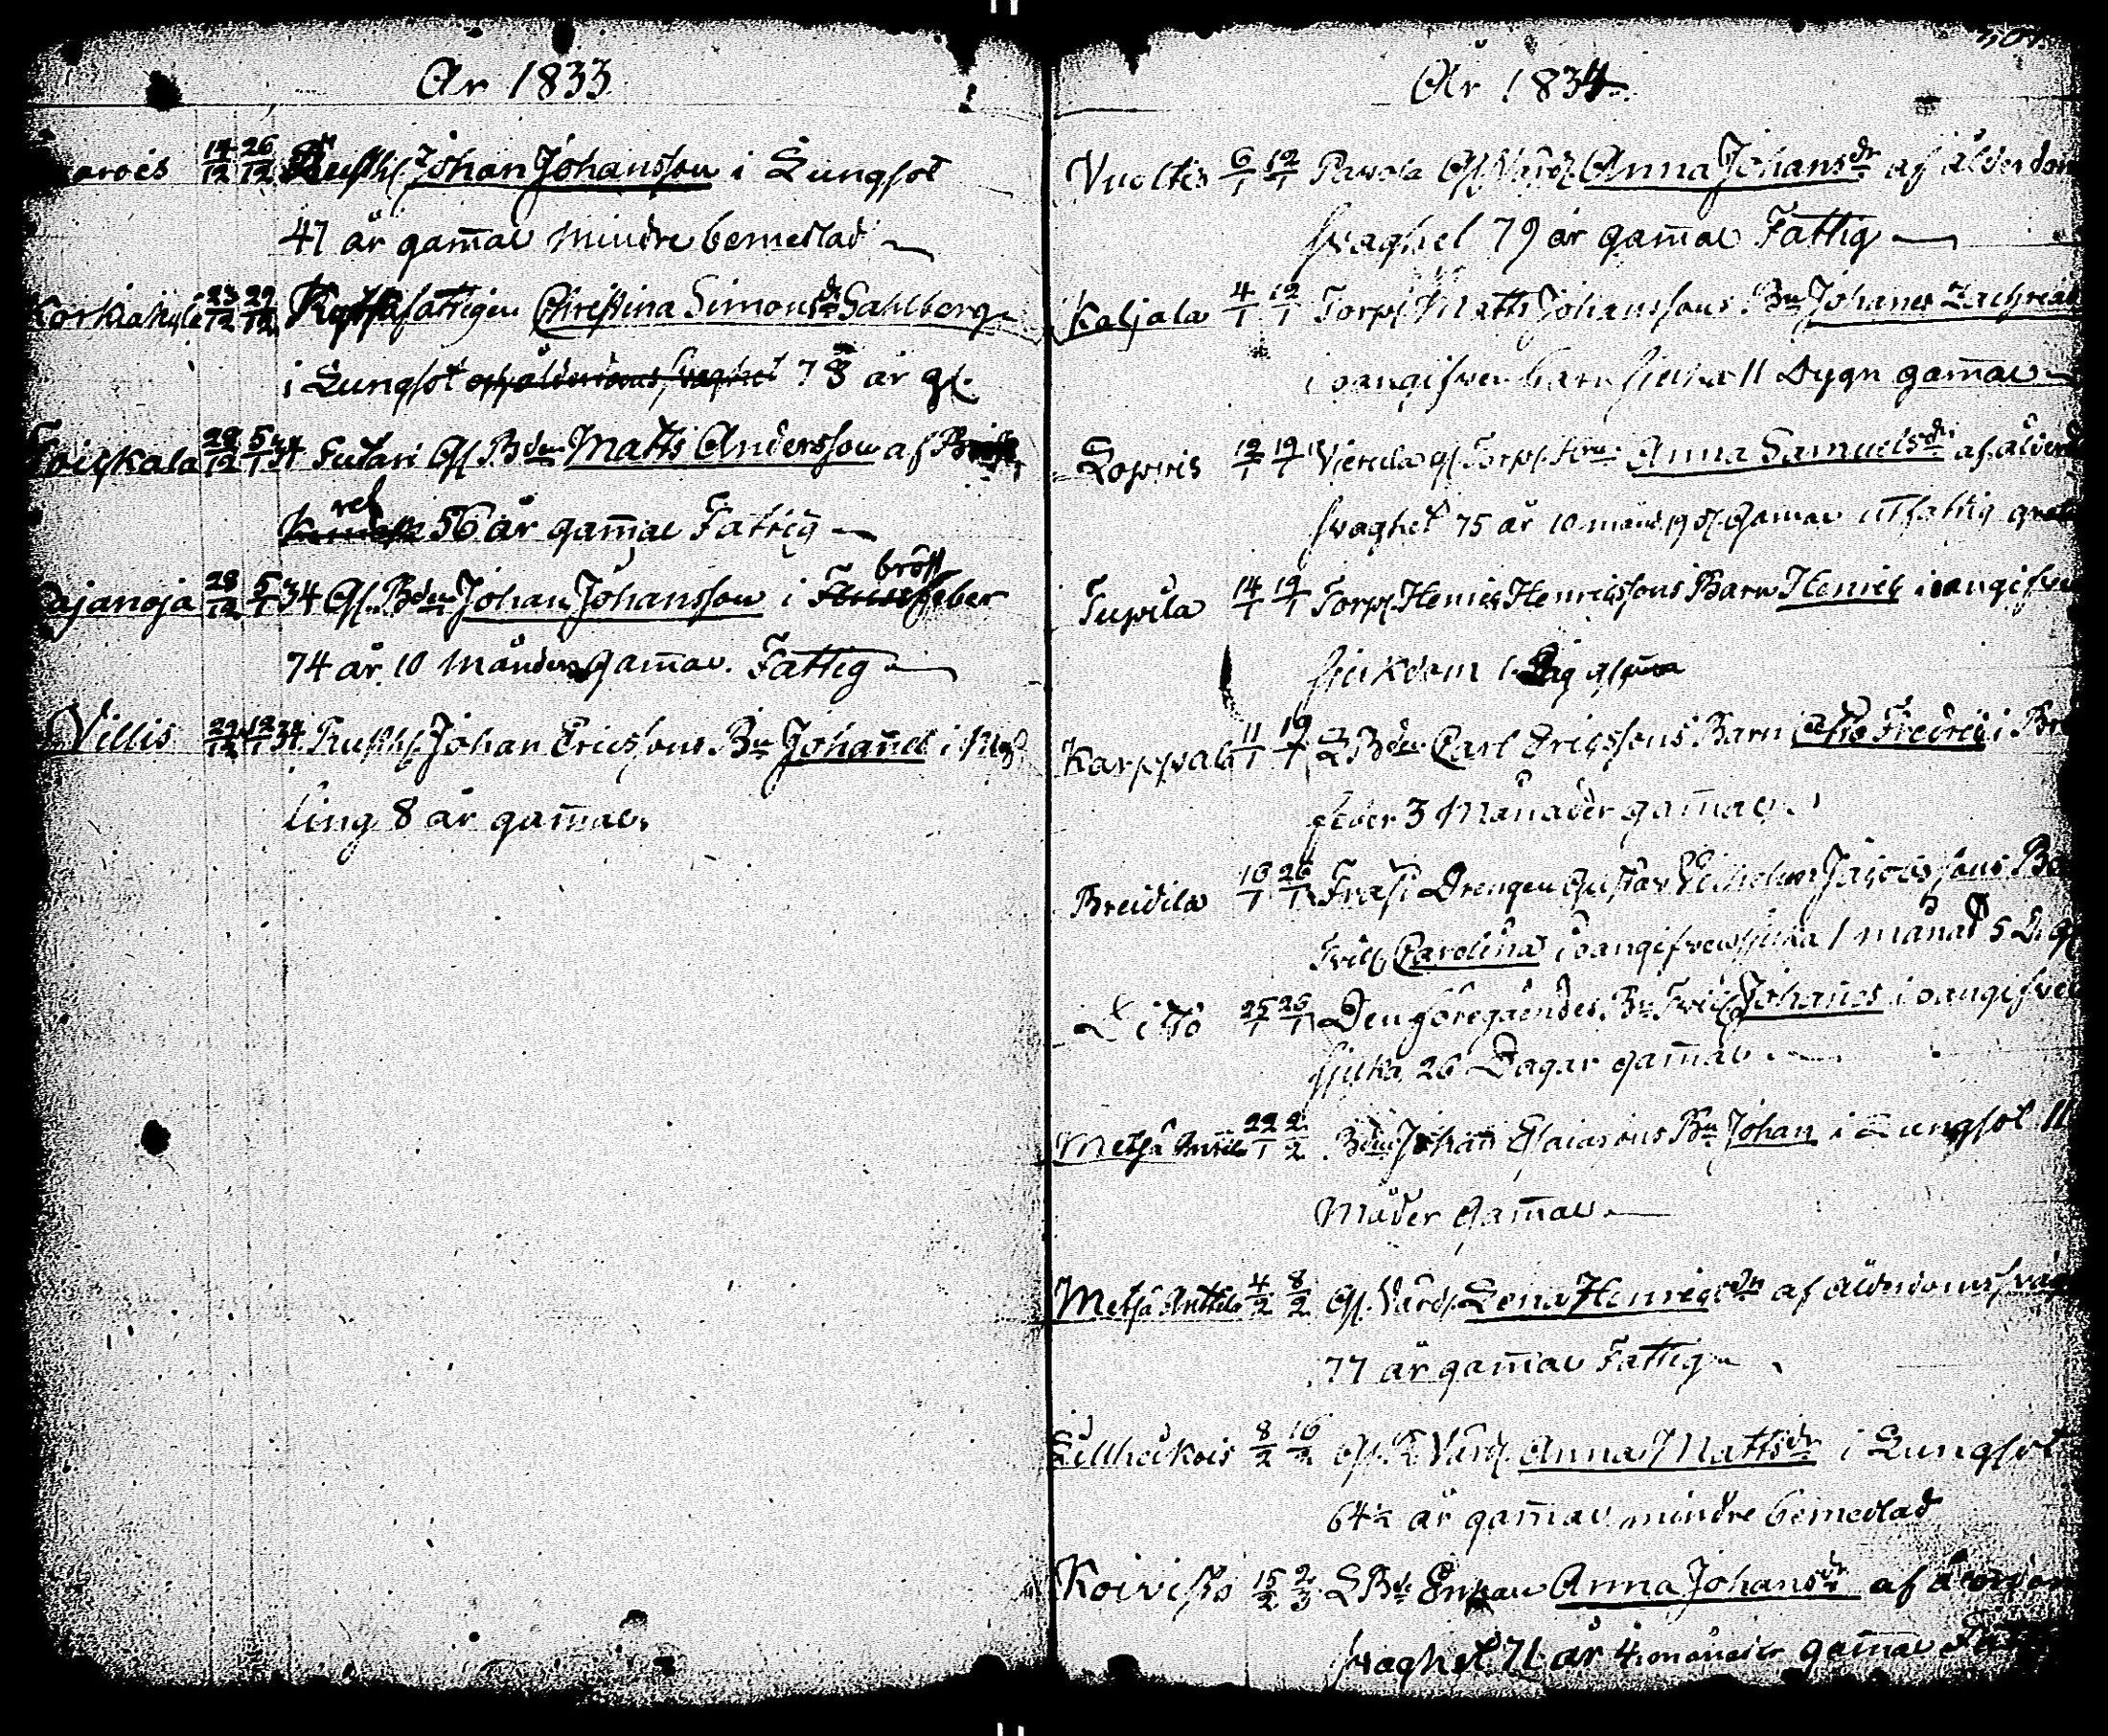 År 1833
14/12 26/12 Rusth. Johan Johansson i Lungsot
47 år gam̄al mindre bemedlad
Korkiakylä 23/12 29/12 fattigen Christina Simonsdr Sahlberg
i Lungsot 78 år gl.
28/12 5/1 34 Sutari Gl. Bden Matts Andersson af
56 år gam̄al Fattig
28/12 5/1 34 Gl. Bden Johan Johansson i bröst feber
74 år 10 Månder gam̄al. Fattig
Villis 29/12 12/1 34 Rusth. Johan Ericssons Bn Johan̄es i Mess
ling 8 år gam̄al.
År 1834
Vuoltis 6/1 12/1 Pavola Gl. Värd. Anna Johansdr af ålderdom
svaghet 79 år gam̄al Fattig
Kaljala 4/1 12/1 Torp. Matts Johanssons Bn Johanes Zachrias
i oangifven barnsjuka 11 Dygn gam̄al
12/1 19/1 gl. Torp. Anna Samuelsdr af ålderd
svaghet 75 år 10 mån. 19 d. Gam̄al utfattig
Tupila 14/1 19/1 Torp. Henric Henricssons Barn Henric i oangifven
sjukdom 1 Dag
Karppala 11/1 19/1 1/2 Bden Carl Ericssons Barn Otto Fredric i Br
feber 3 Månader gam̄al
Breidila 10/1 26/1 Drengen Gustav Vilhelm Jacobssons Ba
Tvill. Carolina i oangifven sjuka 1 månad 5 D. gl
Ditto 25/1 26/1 Den föregåendes Bn Tvill. Johan̄es i oangifven
sjuka 26 Dagar gam̄al
Metsä Anttila 22/1 2/2 Bden Johan Esaiasons Bn Johan i Lungsot 11
Måder Gam̄al
Metsä Anttila 4/2 8/2 Gl. Värd. Lena Henricsdr af ålderdomssvag
77 år gam̄al Fattig
Lillheikois 8/2 16/2 Gl. Värd. Anna Mattsdr i Lungsot
64 1/2 år gam̄al mindre bemedlad
Koivisto 15/2 2/3 Bde Enkan Anna Johansdr af ålderdom
svaghet 71 år 4 månader gam̄al